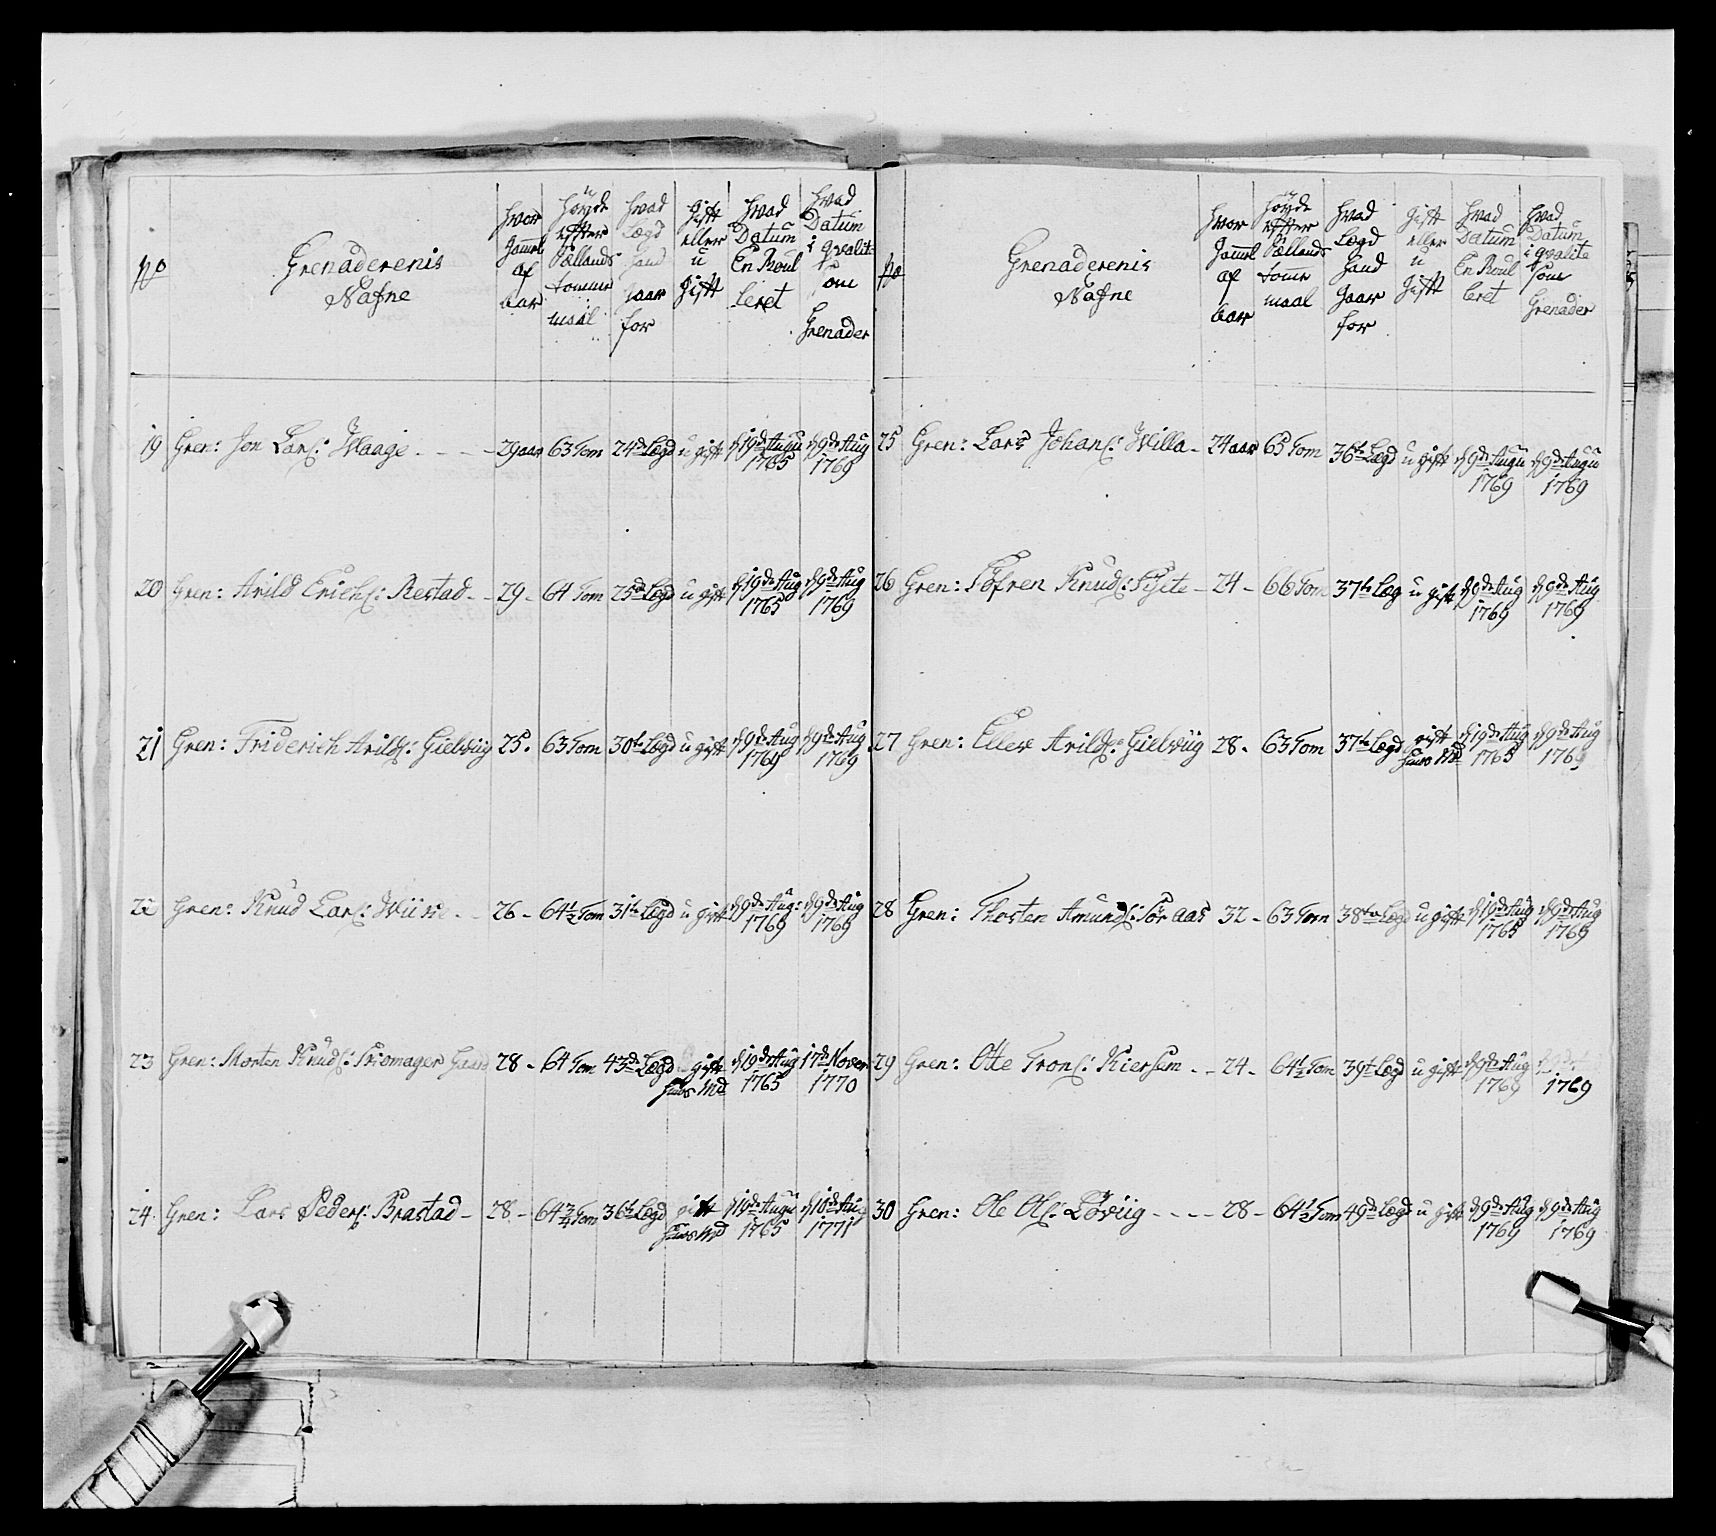 No
Grenaderenis
Nafne
hvor
Gamel
af
aar
Høyde
effter
Sællands
tomme
maal
hvad
Lægd
hand
staar
for
Gift
eller
u
Gift
hvad
Datum
En Roul
leret
hvad
Datum
i qvalite
som
Grenader
19 Gren: Jon Lars: Waage - - - - 29 aar 63 Tom 24de Lægd u gift d 19de Augu 1765 d 9de Aug 1769
20 Gren: Arild Erichs: Restad - - 29 - 64 Tom 25de Lægd u gift d 19de Aug 1765 d 9de Aug 1769
21 Gren: Friderich Arilds: Gielwiig 25. 63 Tom 30te Lægd u gift d 9de Aug 1769 d 9de Aug 1769
22 Gren: Knud Lars: - - 26 - 64½ Tom 31te Lægd u gift d 9de Aug: 1769 d 9de Aug 1769
23 Gren: Morten Knuds: 28 - 64 Tom 43de Lægd gift Huus Md d 19de Aug 1765 17de Nover 1770
24 Gren: Lars Peders: Brastad - 28 - 64¾ Tom 36te Lægd gift Huus Md d 19de Augu 1765 d 10de Aug 1771
No
Grenaderenis
Nafne
hvor
Gamel
af
aar
Høyde
effter
Sællands
tomme
maal
hvad
Lægd
hand
staar
for
Gift
eller
u
Gift
hvad
Datum
En Roul
leret
hvad
Datum
i qvalite
som
Grenader
25 Gren: Lars Johans: Willa - 24 aar 65 Tom 36te Lægd u gift d 9de Augu 1769 d 9de Augu 1769
26 Gren: Søfren Knuds: - 24 - 66 Tom 37te Læg u gift d 9de Aug 1769 d 9de Aug 1769
27 Gren: Ellev Arilds: Gielwiig 28 - 63 Tom 37te Lægd gift Huus Md d 19de Aug 1765 d 9de Aug 1769
28 Gren: Thosten Amunds: Sør aas 32 - 63 Tom 38te Lægd u gift d 19de Aug 1765 d 9de Aug 1769
29 Gren: Otte Trons: Kiersum - - 24 - 64½ Tom 39t Lægd u gift d 9de Aug 1769 1769
30 Gren: Ole Ols: Løviig - - - - 28 - 64½ Tom 49de Lægd u gift d 9de Aug 1769 d 9de Aug 1769